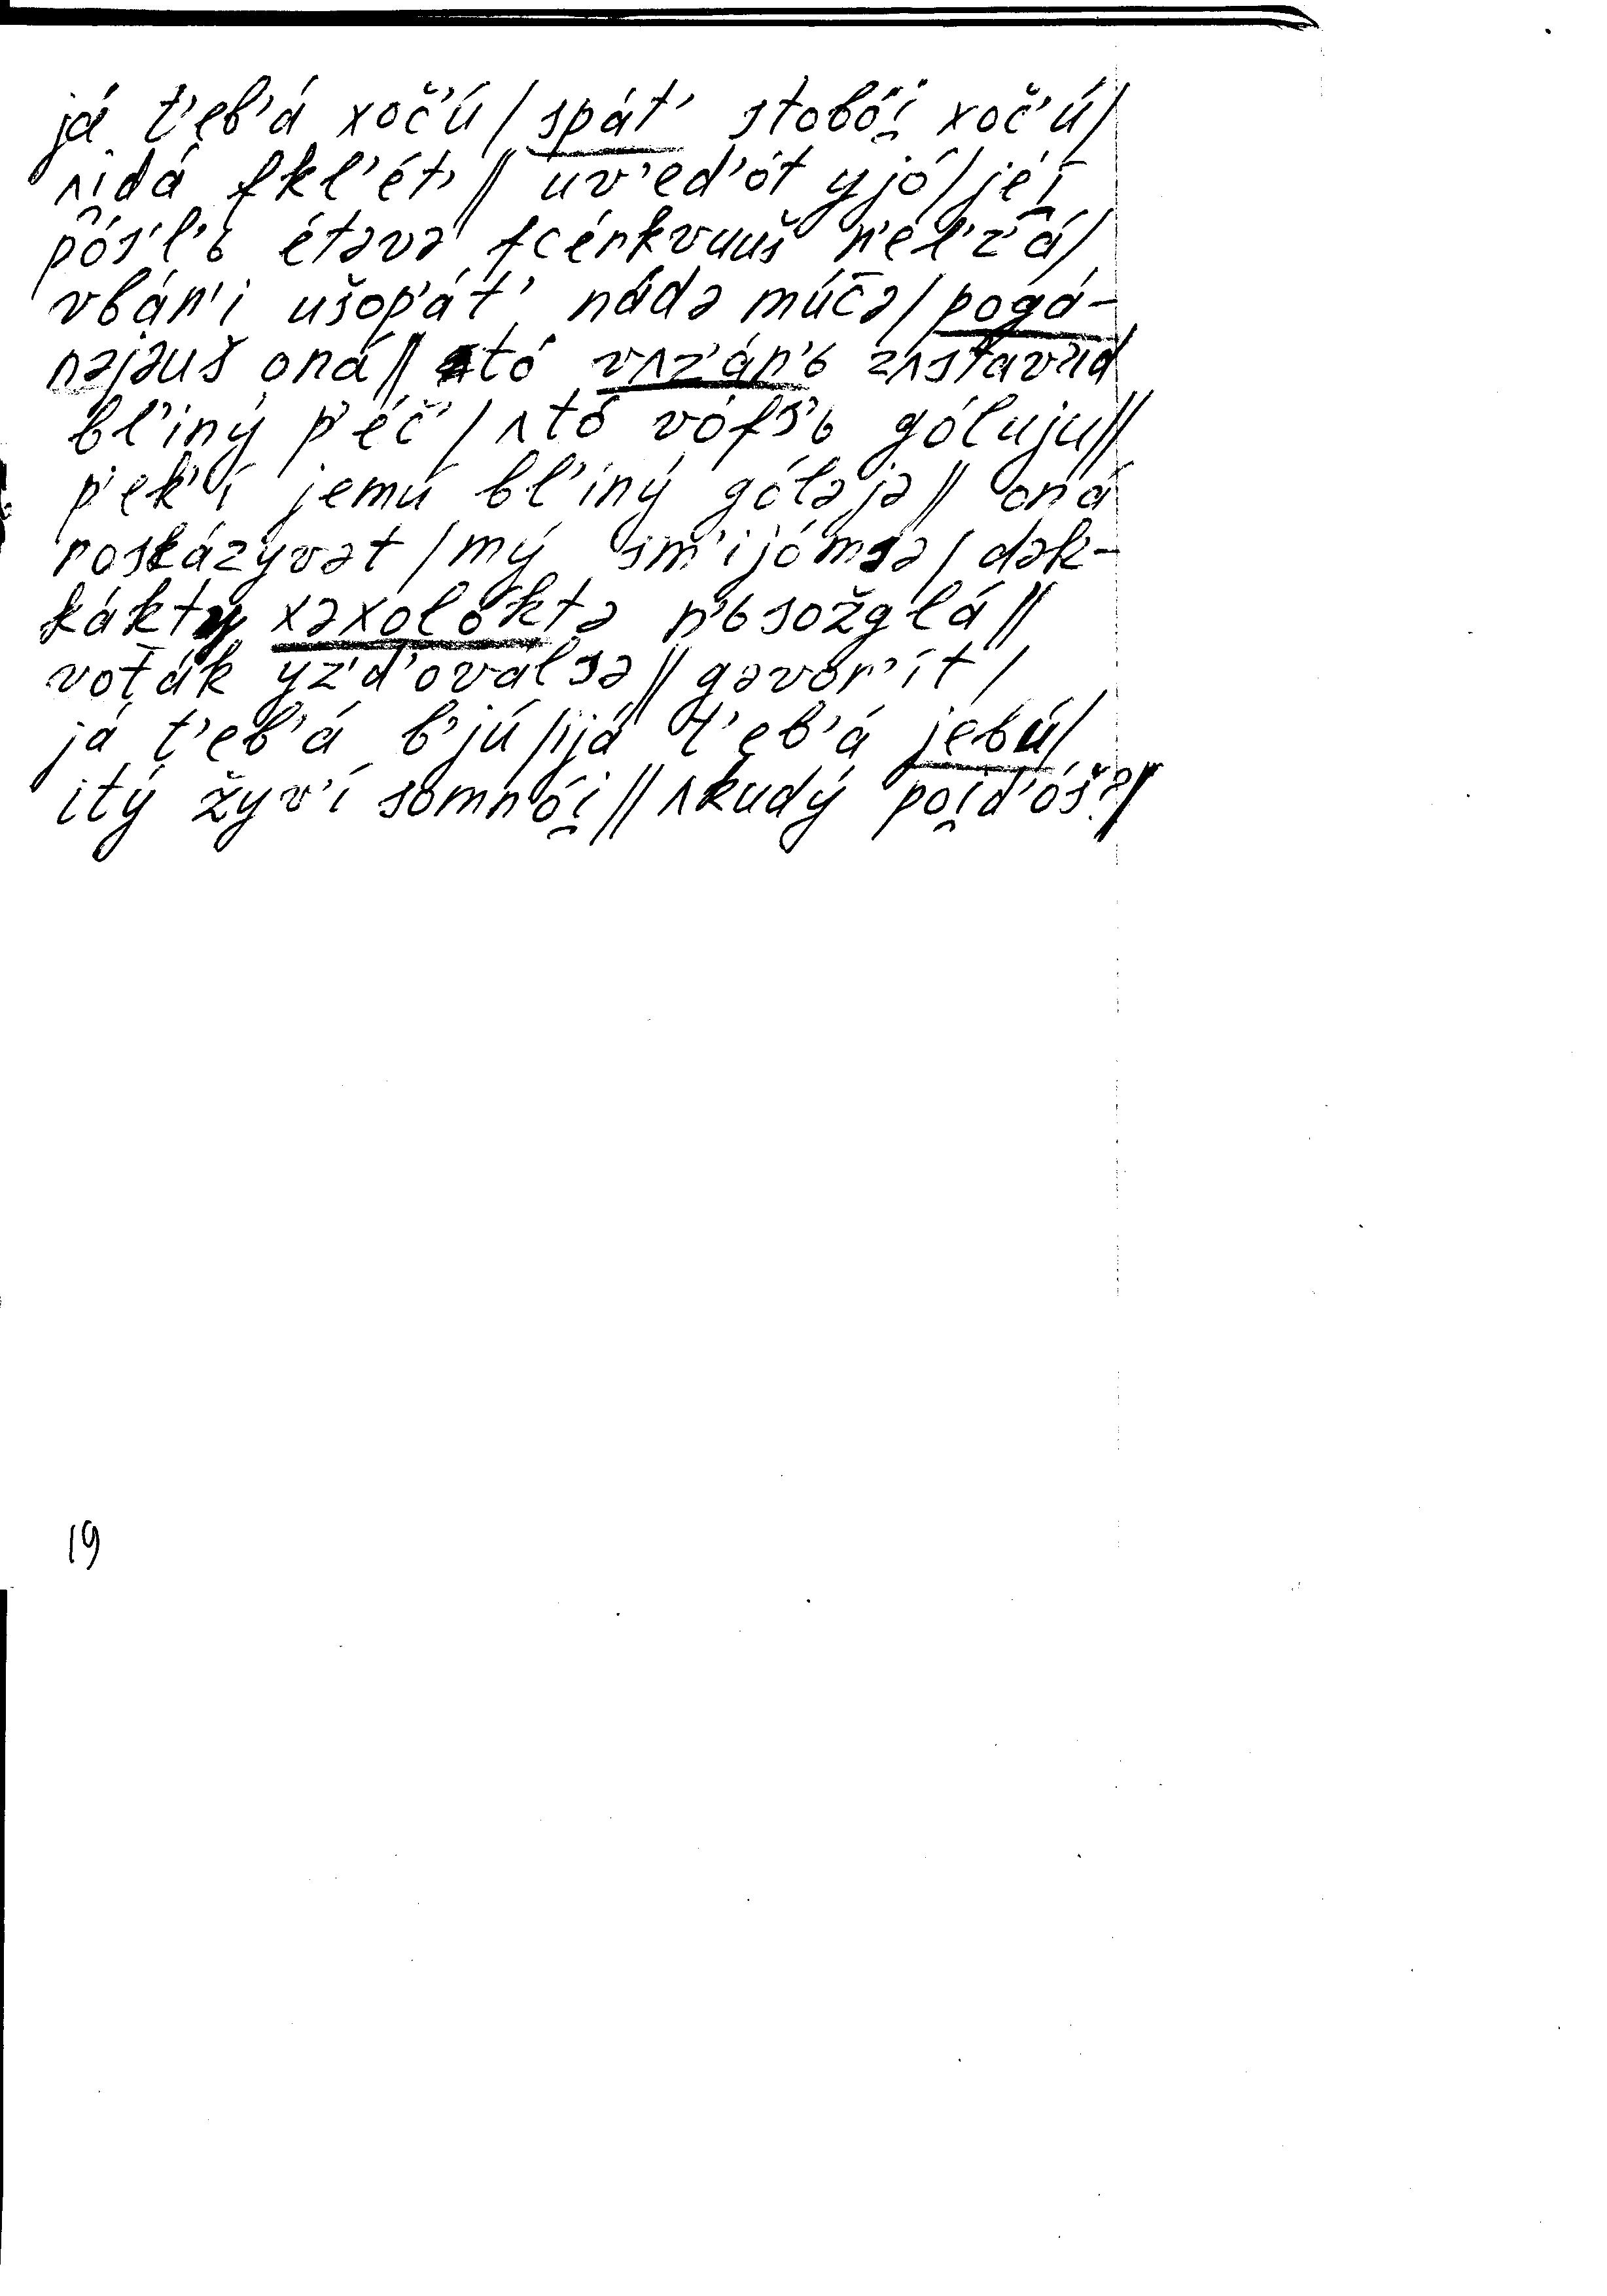 já t'ęb'á xoč'ú / spát' stobói̯ xoč'ú /
ʌi̯dá fkl'ét' // uv'ed'ót yjó / jéi̯
pós'l'ь étəvə fcérkvuuš n'él'z'á /
vbán'i ušop'át' nádə múčə / pogá-
nəjəuš oná // ʌtó vʌz'án'ь zʌstáv'ud
bl'iný p'éč' / ʌtó vófs'ь góluju //
p'ek'í jemú bl'iný góləjə // oná
roskázyvət / mý sm'ijómsə / dək-
kákty xəxolóktə n'ь sožglá //
voták yz'd'oválsə // gəvor'ít /
já t'ęb'á b'jú / ijá t'ęb'á jebú /
itý žyv'í somnói̯ // ʌkudý poi̯d'óš? //
19